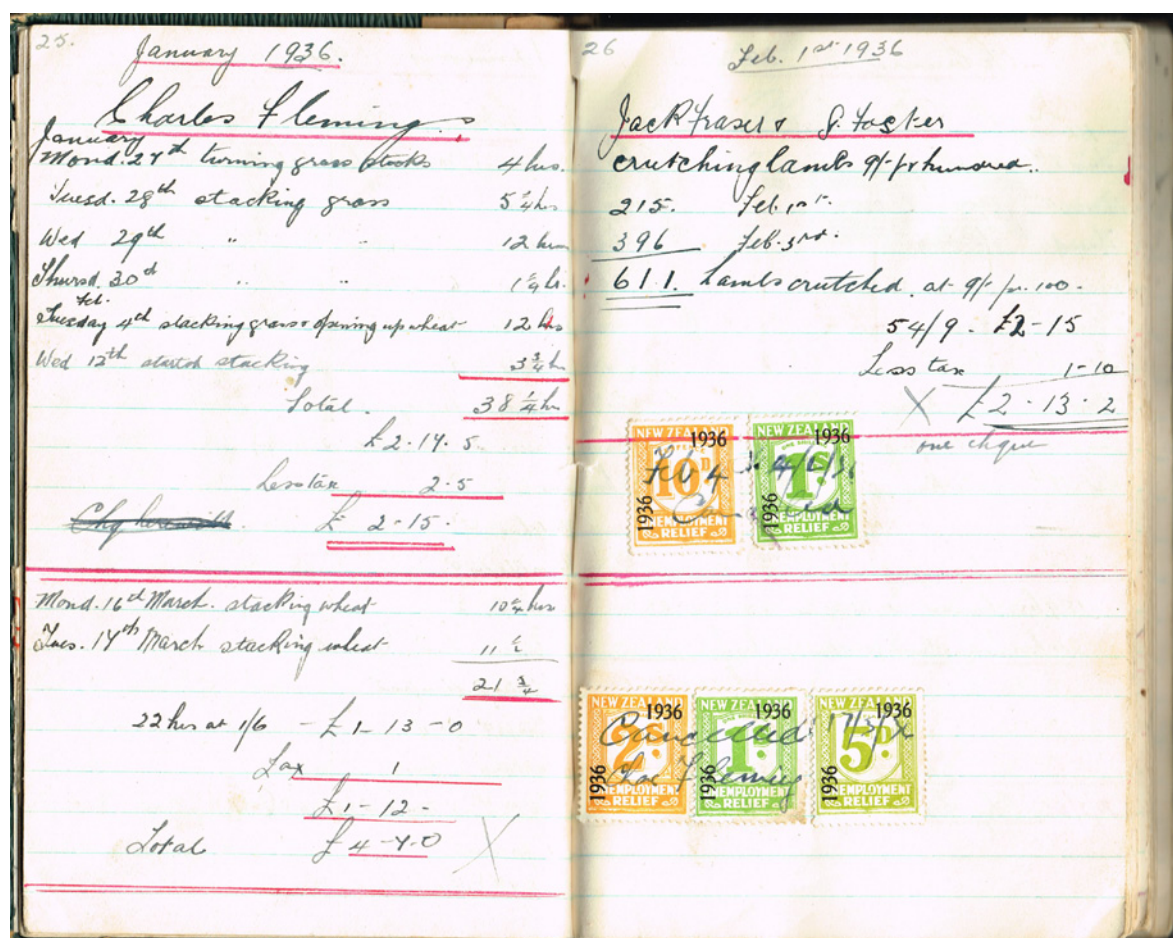 25.
January 1936.
Charles Fleming.
January
Mond. 27th turning grass stooks 4 hrs.
Tuesd. 28th stacking grass 5 1/4 hrs
Wed 29th " " 12 hrs
Thursd. 30th " " 1 1/4 hr.
Feb.
Tuesday 4th stacking grass & opening up wheat 12 hrs
Wed 12th started stacking 3 3/4 hr
Total. 38 1/4 hr
£2.17.5
Less tax 2.5
£ 2-15-
Mond. 16th March. stacking wheat 10 1/4 hrs
Tues. 17th March stacking wheat 11 1/2
21 3/4
22 hrs at 1/6 - £1-13-0
Tax 1
£1-12-
Total £4-7-0 X
26
Feb. 1st 1936
Jack Fraser & J. Foster
crutching lambs 9/- pr hundred..
215. Feb 1st.
396 Feb. 3rd.
611. Lambs crutched. at 9/- pr. 100-
54/9 - £2-15
Less tax 1-10
X £2.13.2
one chque
NEW ZEALAND
1936
10D
1936
UNEMPLOYMENT
RELIEF
NEW ZEALAND
1936
1S
1936
UNEMPLOYMENT
RELIEF
Feb 4 4/2/36
NEW ZEALAND
1936
2S
1936
UNEMPLOYMENT
RELIEF
NEW ZEALAND
1936
1S
1936
UNEMPLOYMENT
RELIEF
NEW ZEALAND
1936
5D
1936
UNEMPLOYMENT
RELIEF
Cancelled 17/3/
Chas Fleming